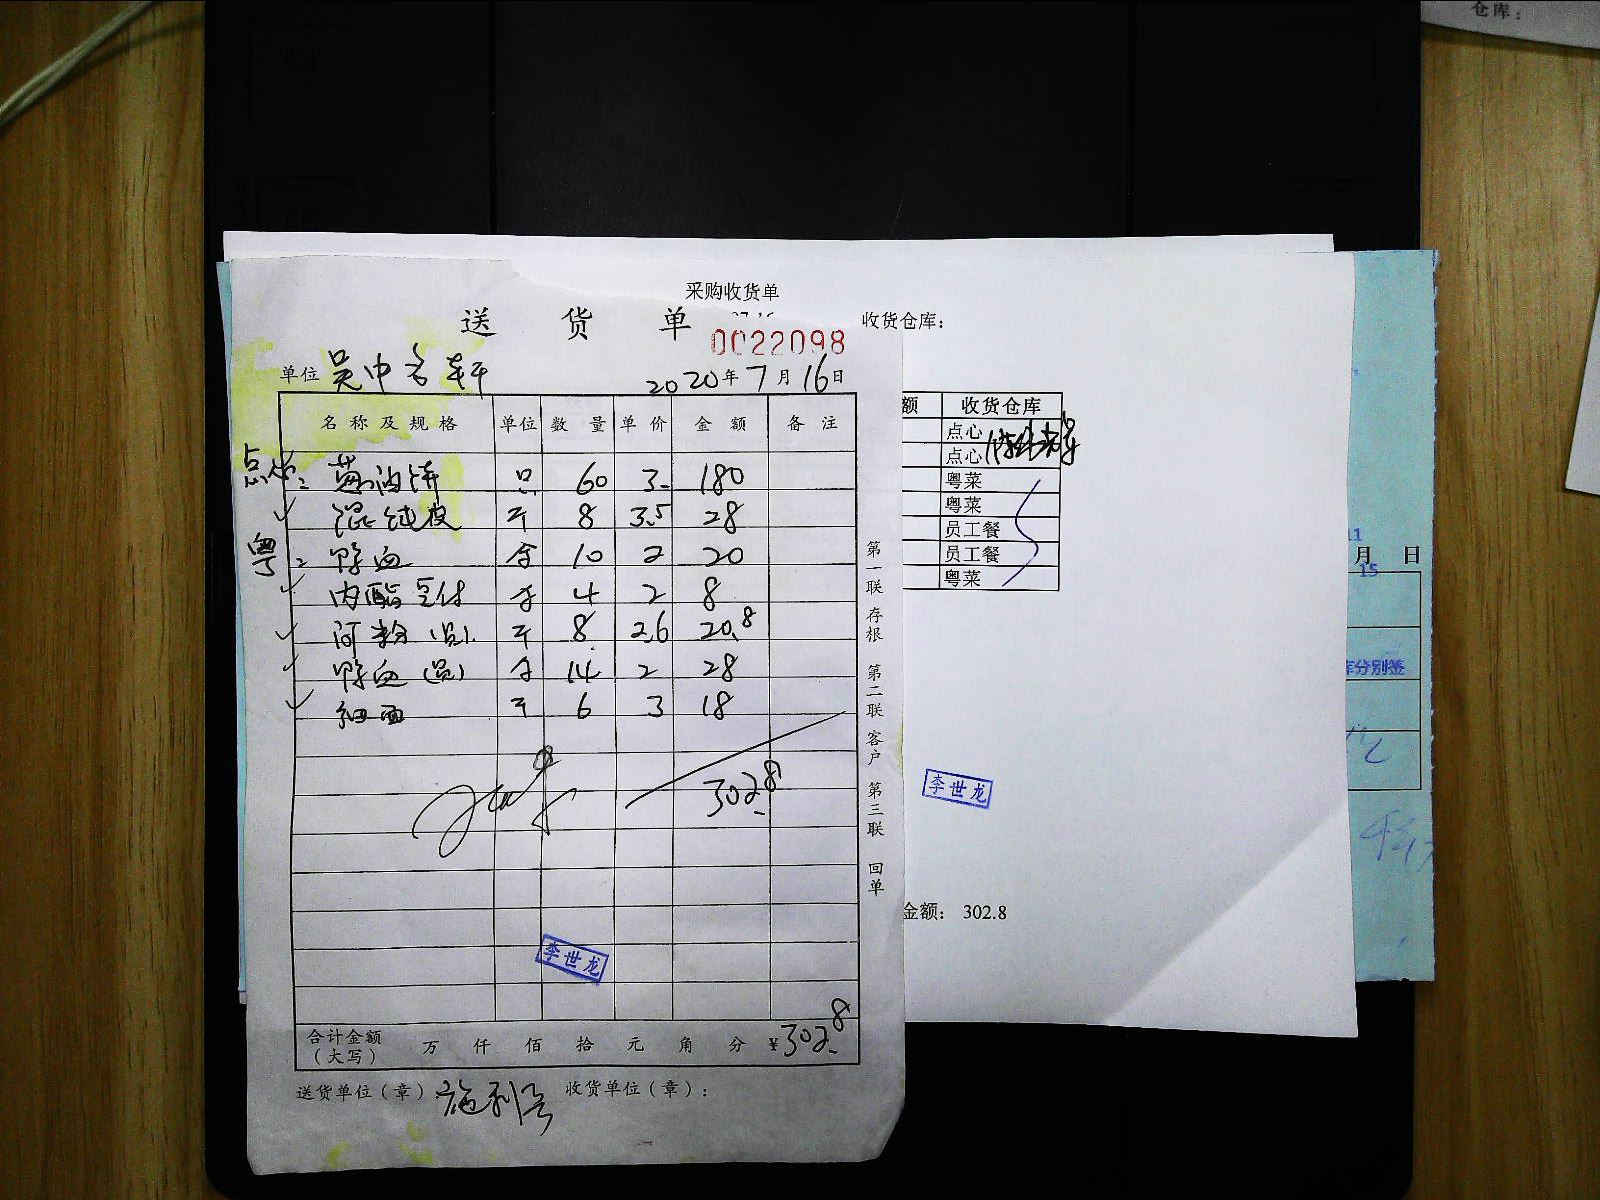 仓库：
采购收货单
送 货 单
收货仓库：
0022098
单位 吴中名轩
2020年7月16日
名称及规格 单位 数量 单价 金额 备注
额 收货仓库
点心
点心
粤菜
粤菜
员工餐
员工餐
粤菜
点心： 葱油饼 只 60 3. 180
馄饨皮 斤 8 3.5 28
粤： 鸭血 合 10 2 20
内酯豆付 合 4 2 8
河粉（员） 斤 8 2.6 20.8
鸭血（员） 合 14 2 28
细面 斤 6 3 18
302.8
第一联 存根 第二联 客户 第三联 回单
李世龙
李世龙
金额： 302.8
合计金额（大写） 万 仟 佰 拾 元 角 分 ¥302.8
送货单位（章） 收货单位（章）：
11
月 日
15
库分别签